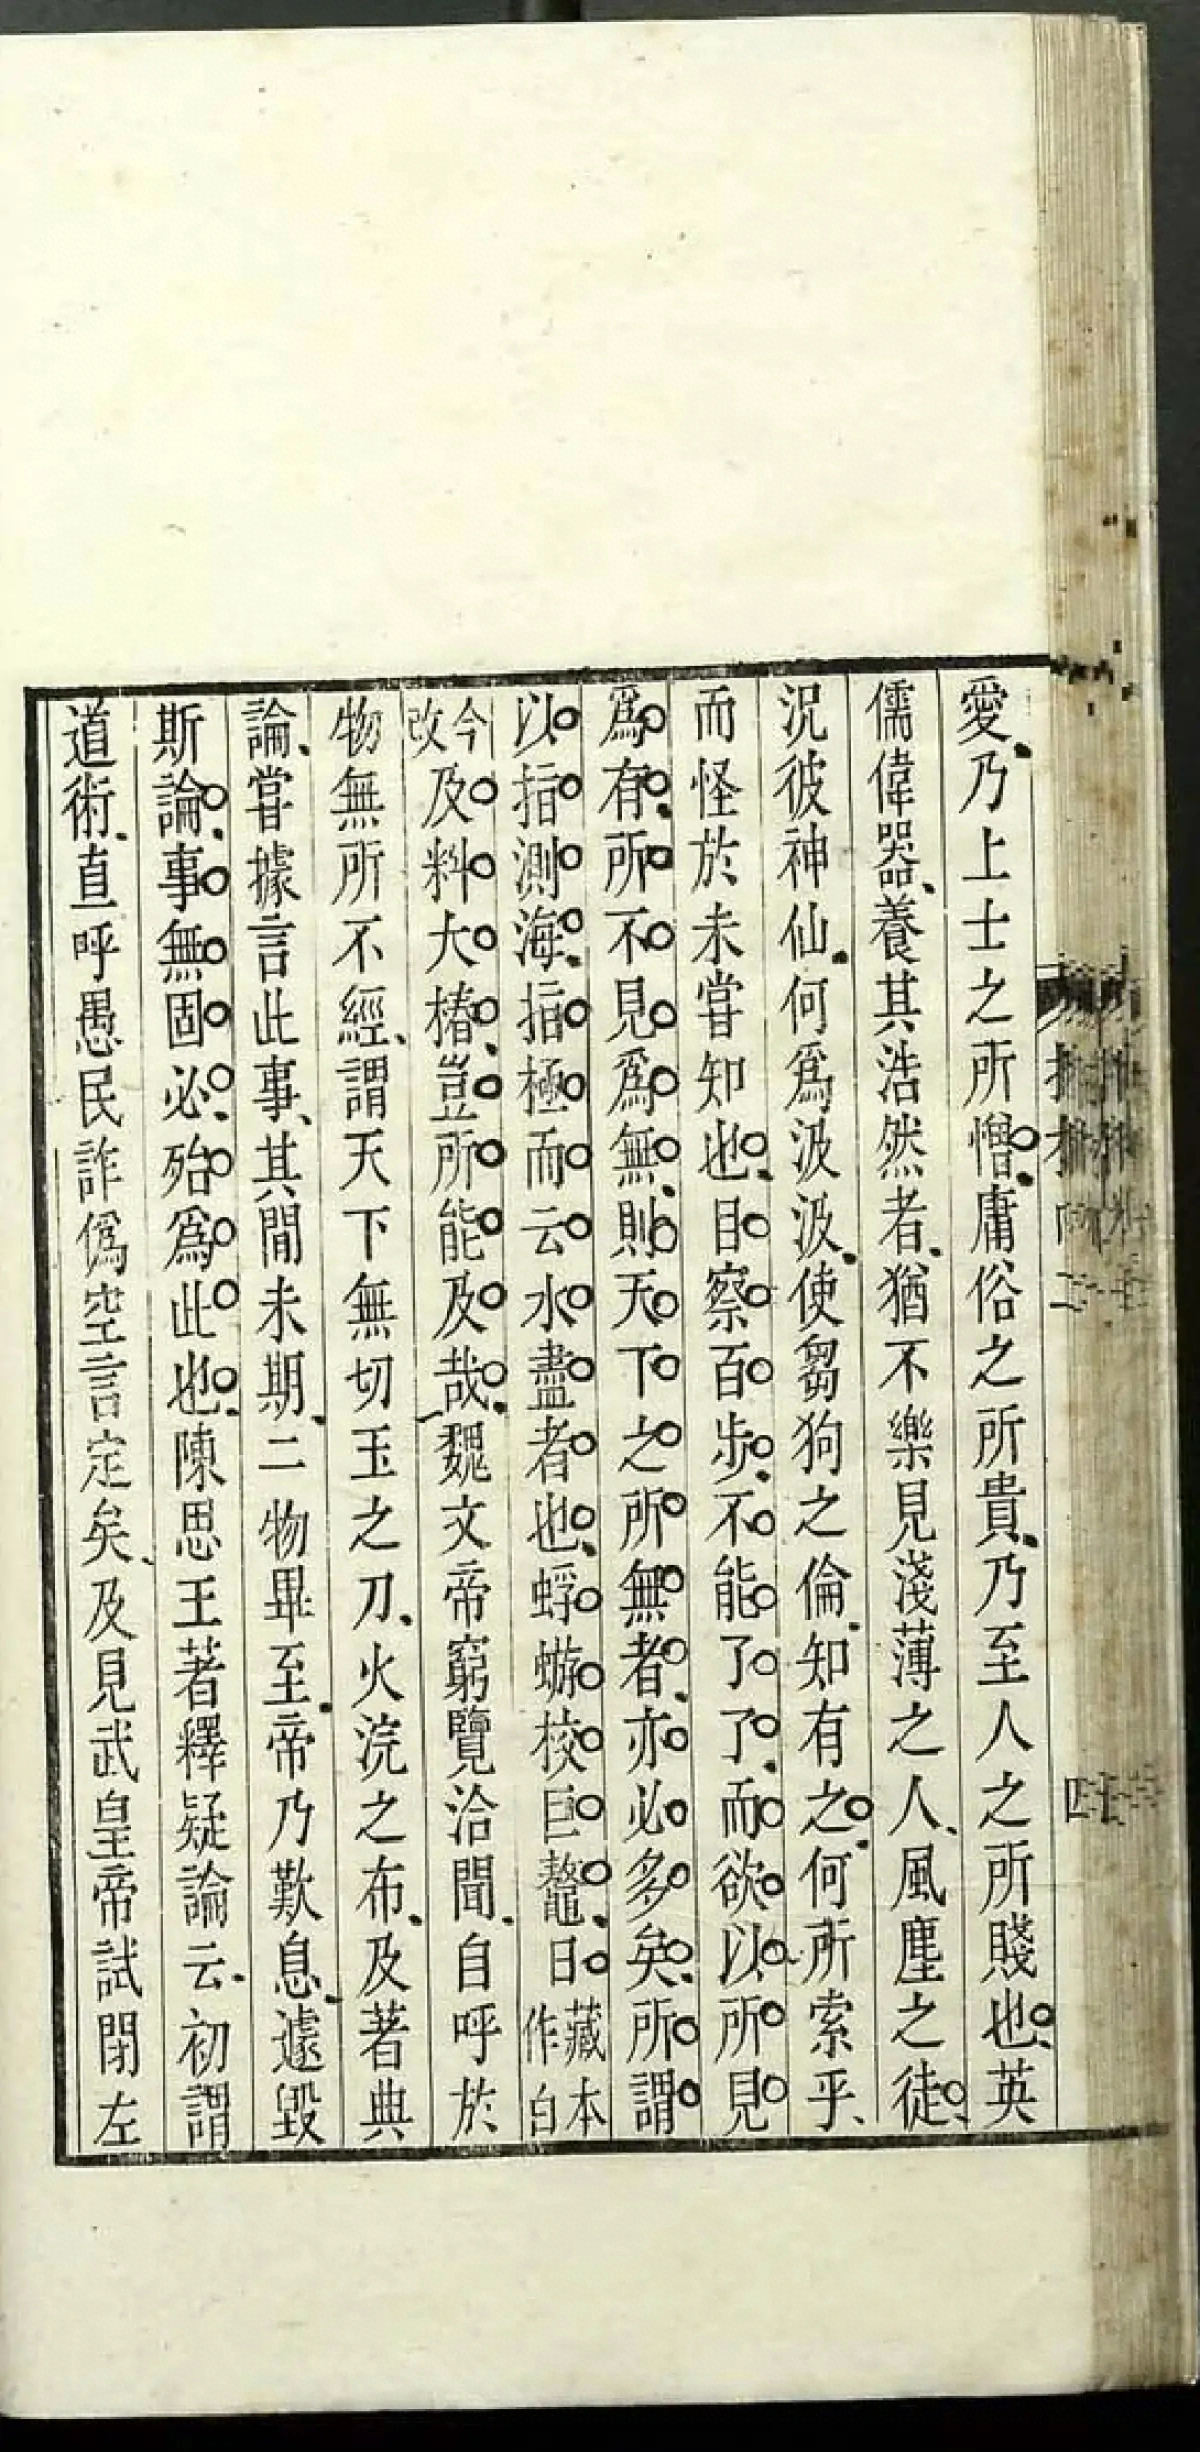 愛乃上士之所憎庸俗之所貴乃至人之所賤也英
儒偉器養其浩然者猶不樂見淺薄之人風塵之徒
況彼神仙何爲汲汲使芻狗之倫知有之何所索乎
而怪於未嘗知也目察百步不能了了而欲以所見
爲有所不見爲無則天下之所無者亦必多矣所謂
以指測海指極而云水盡者也蜉蝣校巨鼇日藏本作白
今改及料大椿豈所能及哉魏文帝窮覽洽聞自呼於
物無所不經謂天下無切玉之刀火浣之布及著典
論嘗據言此事其閒未期二物畢至帝乃歎息遽毀
斯論事無固必殆爲此也陳思王著釋疑論云初謂
道術直呼愚民詐僞空言定矣及見武皇帝試閉左